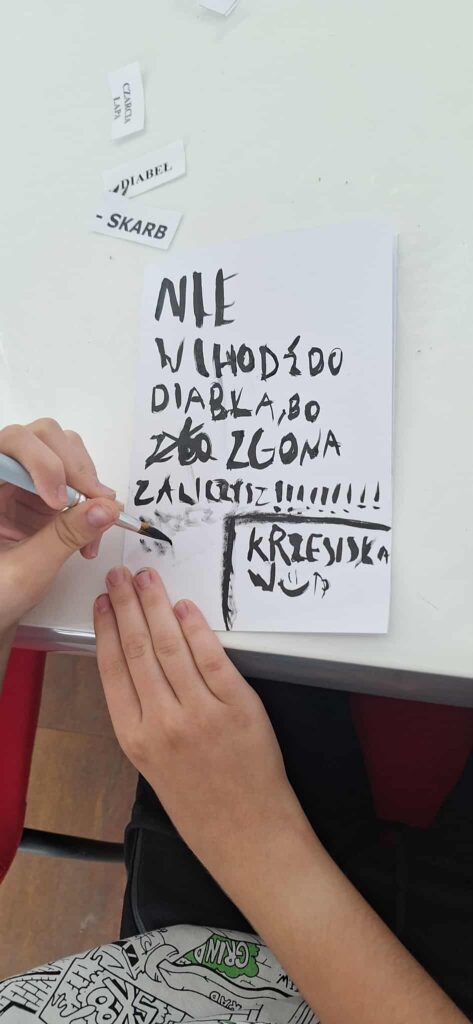 CZARCIA
ŁAPA
DIABEL
- SKARB
NIE
WCHODŹ DO
DIABŁA, BO
ZGONA
ZALICZYSZ!!!!!!!!!
KRZESISKA
GRIND